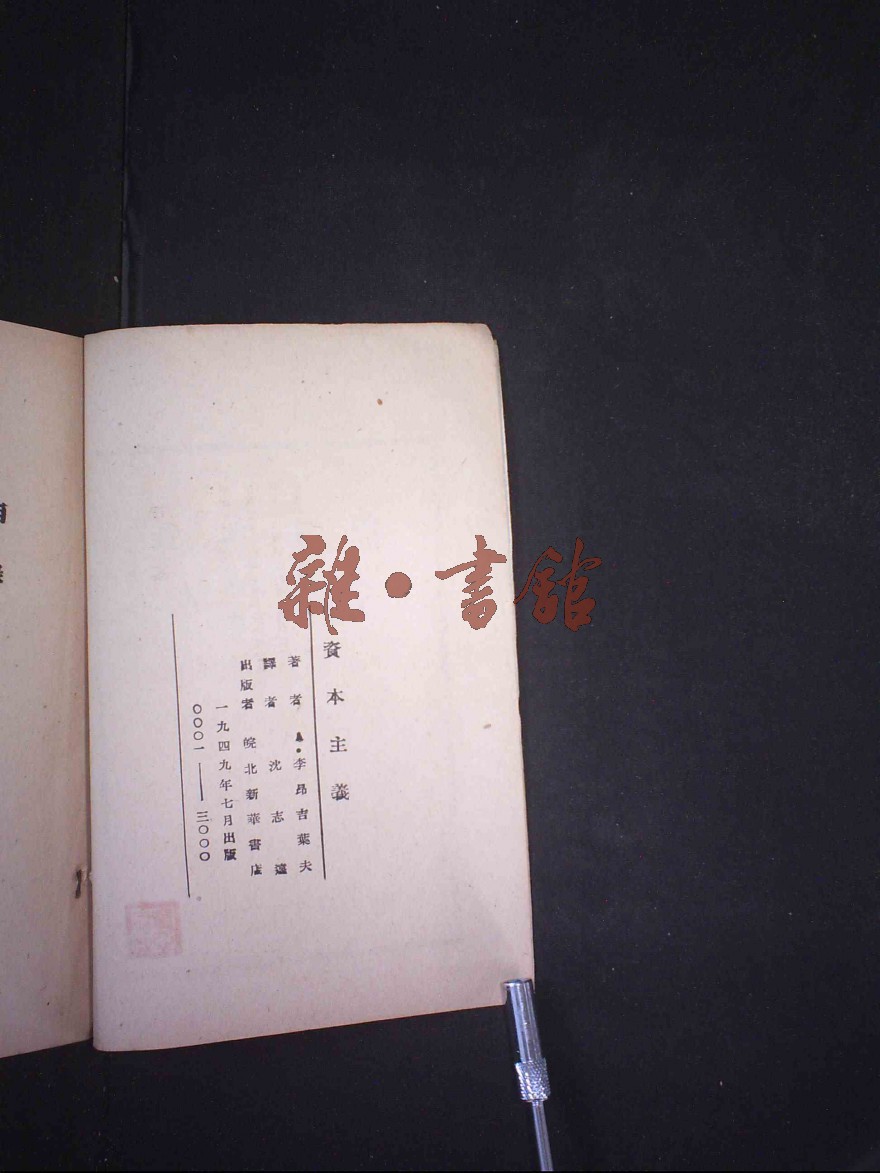 雜·書館
資本主義
著者 A·李昂吉葉夫
譯者 沈志遠
出版者 皖北新華書店
一九四九年七月出版
0001——三000